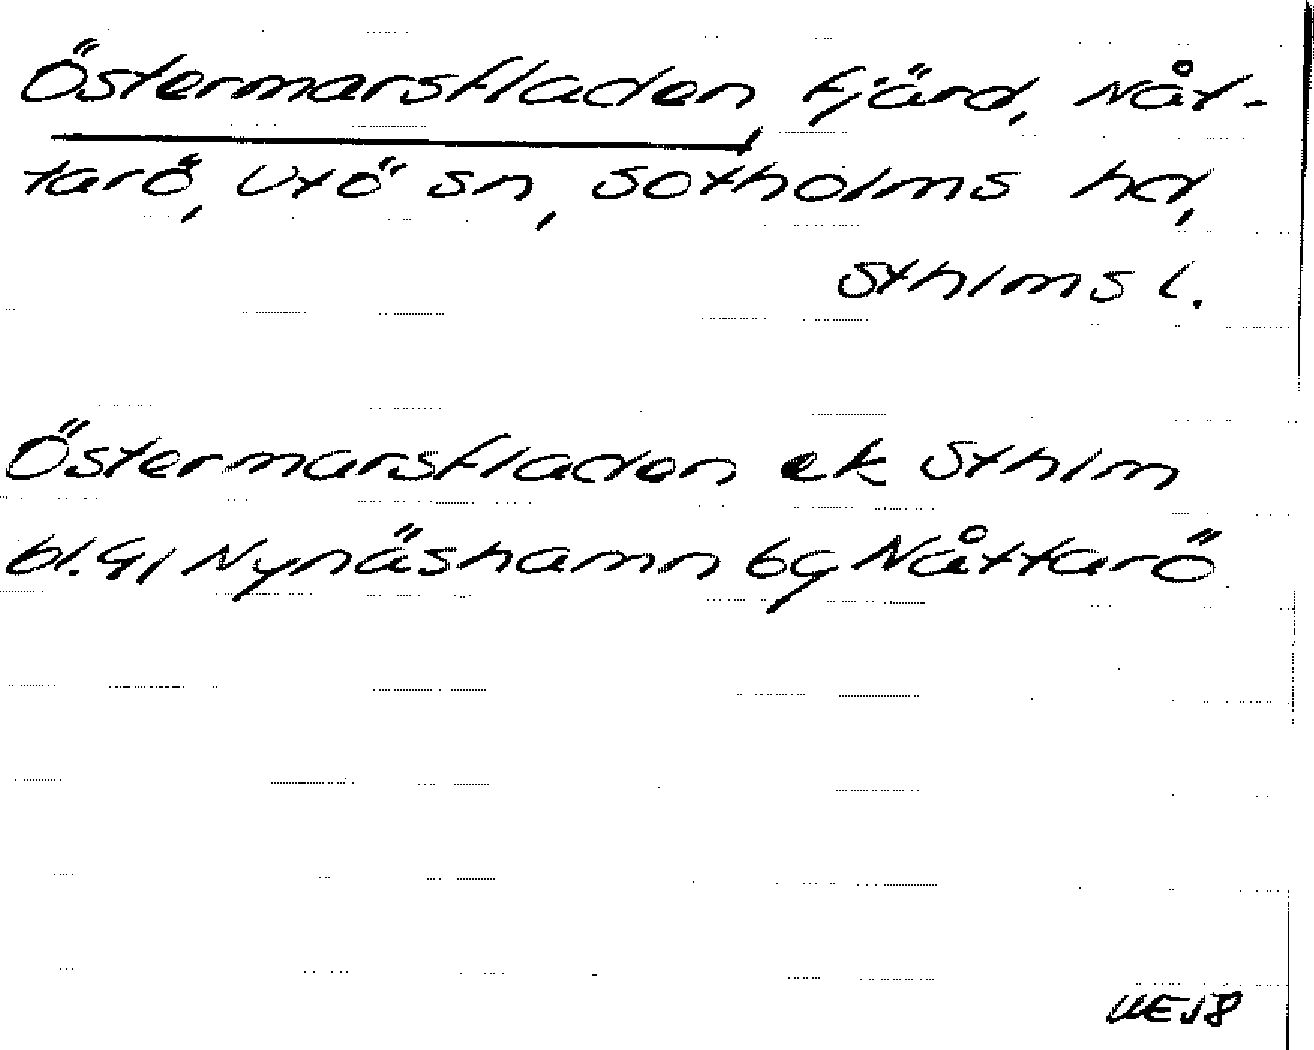 Östermarsfladen, fjärd, Nåt-
tarö, Utö sn, Sotholms hd,
Sthlms l.
Östermarsfladen ek Sthlm
bl. 91 Nynäshamn 6g Nåttarö